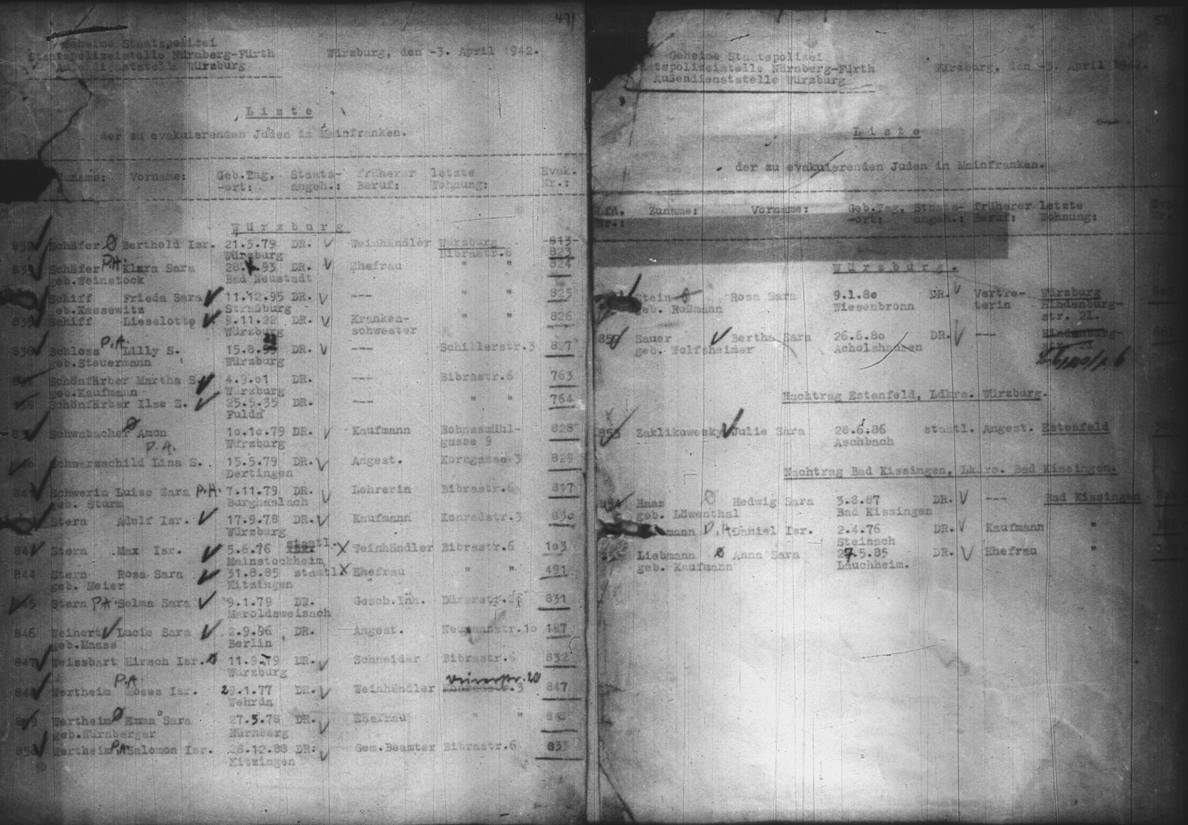 491
Geheime Staatspolizei
Staatspolizeistelle Nürnberg-Fürth
Würzburg, den -3. April 1942.
Würzburg
Liste
der zu evakuierenden Juden in Mainfranken.
Vorname: Geb.Tag, Staats- früherer letzte Evak.
-ort: angeh.: Beruf: Wohnung: Nr.:
Würzburg
Schäfer Berthold Isr. 21.5.79 DR. Weinhändler Würzburg 813
Würzburg Bibrastr.6 823
Schäfer P.A. Klara Sara 93 DR. Ehefrau " " 824
geb.Weinstock Bad Neustadt
Schiff Frieda Sara 11.12.95 DR. --- " " 825
geb.Kassewitz Straßburg
Schiff Lieselotte 9.11.22 DR. Kranken- " " 826
Würzburg schwester
Schloss P.A. Lilly S. 15.8. DR. --- Schillerstr.3 827
geb.Steuermann Würzburg
Schönfärber Martha S. 4.9.01 DR. --- Bibrastr.6 763
geb.Kaufmann Würzburg
Schönfärber Ilse S. 25.5.35 DR. --- " " 764
Fulda
Schwabacher Amon 10.10.79 DR. Kaufmann Rohnesmühl- 828
P.A. Würzburg gasse 9
Schwarzschild Lina S. 15.5.79 DR. Angest. Korngasse 3 829
Dertingen
Schwerin Luise Sara P.A. 7.11.79 DR. Lehrerin Bibrastr.6 817
geb. Sturm Burghaslach
Stern Adolf Isr. 17.9.78 DR. Kaufmann Konradstr.3 830
Würzburg
Stern Max Isr. 5.6.76 staatl. Weinhändler Bibrastr.6 103
Mainstockheim
844 Stern Rosa Sara 31.8.85 staatl. Ehefrau " " 491
geb. Meier Kitzingen
Stern P.A. Selma Sara 9.1.79 DR. Gesch.Inh. 831
Maroldsweisach
846 Weinert Lucie Sara 2.9.96 DR. Angest. Neumannstr.10 187
geb.Maass Berlin
847 Weissbart Hirsch Isr. 11.9.79 DR. Schneider Bibrastr.6 832
Würzburg
848 Wertheim P.A. Moses Isr. 29.1.77 DR. Weinhändler 847
Wehrda
849 Wertheim Emma Sara 27.5.78 DR. Ehefrau " "
geb.Nürnberger Nürnberg
850 Wertheim P.A. Salomon Isr. 28.12.88 DR. Gem.Beamter Bibrastr.6 833
Kitzingen
Geheime Staatspolizei
Staatspolizeistelle Nürnberg-Fürth
Würzburg, den -3. April 1942.
Außendienststelle Würzburg
Liste
der zu evakuierenden Juden in Mainfranken.
Lfd. Zuname: Vorname: Geb.Tag, Staats- früherer letzte
Nr.: -ort: angeh.: Beruf: Wohnung:
Würzburg.
Stein Rosa Sara 9.1.80 DR. Vertre- Würzburg
geb. Roßmann Wiesenbronn terin Hindenburg-
str. 21.
Sauer Bertha Sara 26.6.80 DR. --- Hindenburg-
geb. Wolfsheimer Acholshausen
Nachtrag Estenfeld, Ldkrs. Würzburg.
Zaklikowsky Julie Sara 28.6.86 staatl. Angest. Estenfeld
Aschbach
Nachtrag Bad Kissingen, Lkrs. Bad Kissingen.
Haas Hedwig Sara 3.8.87 DR. --- Bad Kissingen
geb. Löwenthal Bad Kissingen
P.A. Daniel Isr. 2.4.76 DR. Kaufmann "
Steinach
Liebmann Anna Sara 27.5.85 DR. Ehefrau "
geb. Kaufmann Lauchheim.